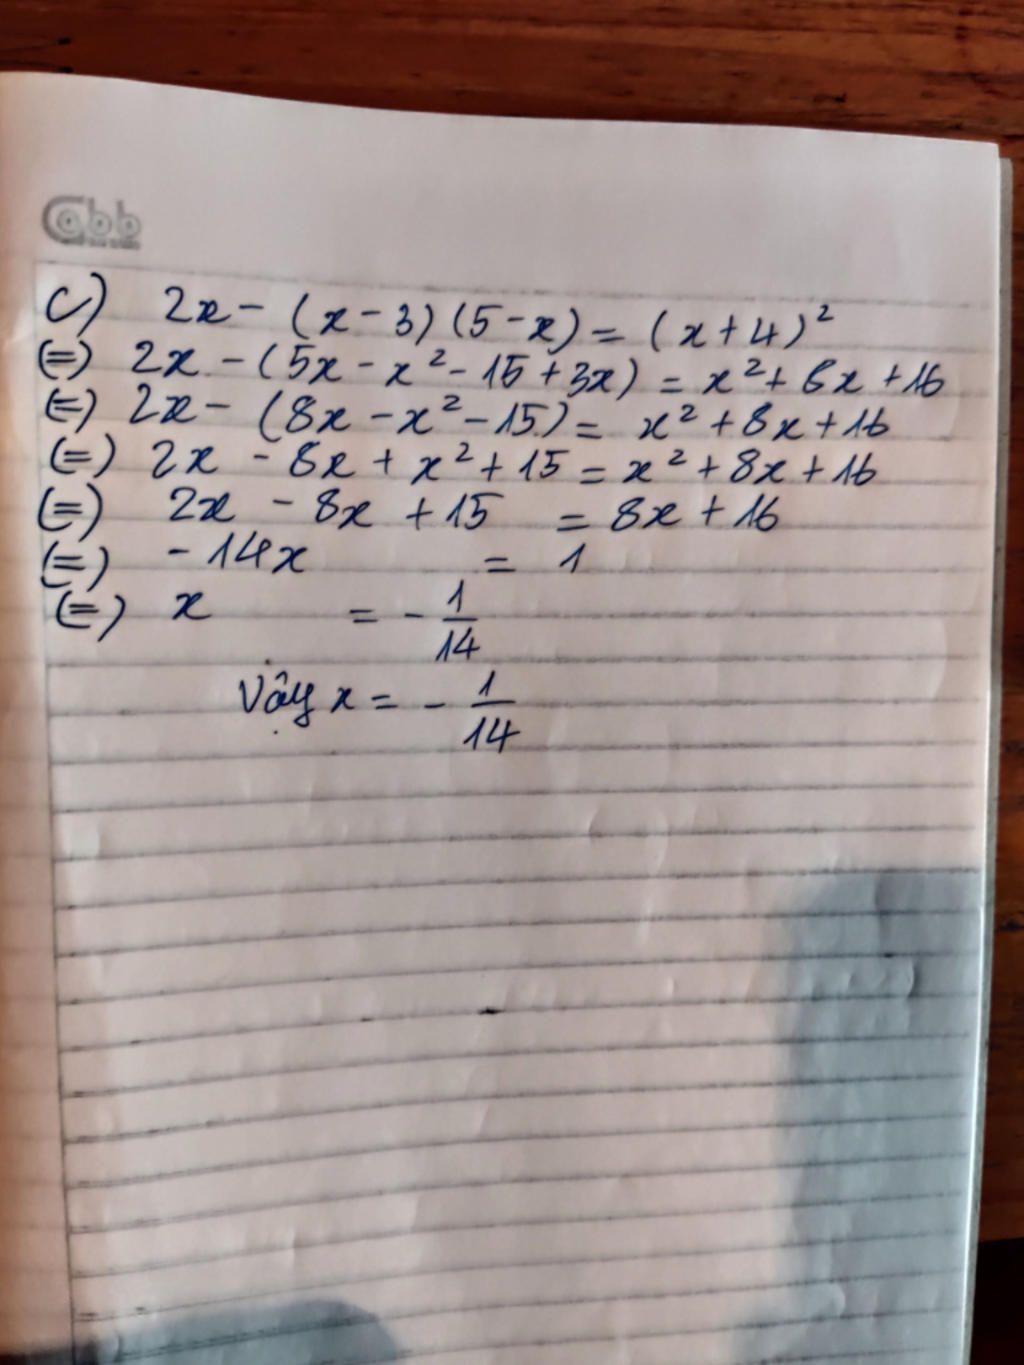 Cabb
c) 2x - (x - 3)(5 - x) = (x + 4)²
(=) 2x - (5x - x² - 15 + 3x) = x² + 8x + 16
(=) 2x - (8x - x² - 15) = x² + 8x + 16
(=) 2x - 8x + x² + 15 = x² + 8x + 16
(=) 2x - 8x + 15 = 8x + 16
(=) - 14x = 1
(=) x = - 1/14
Vậy x = - 1/14